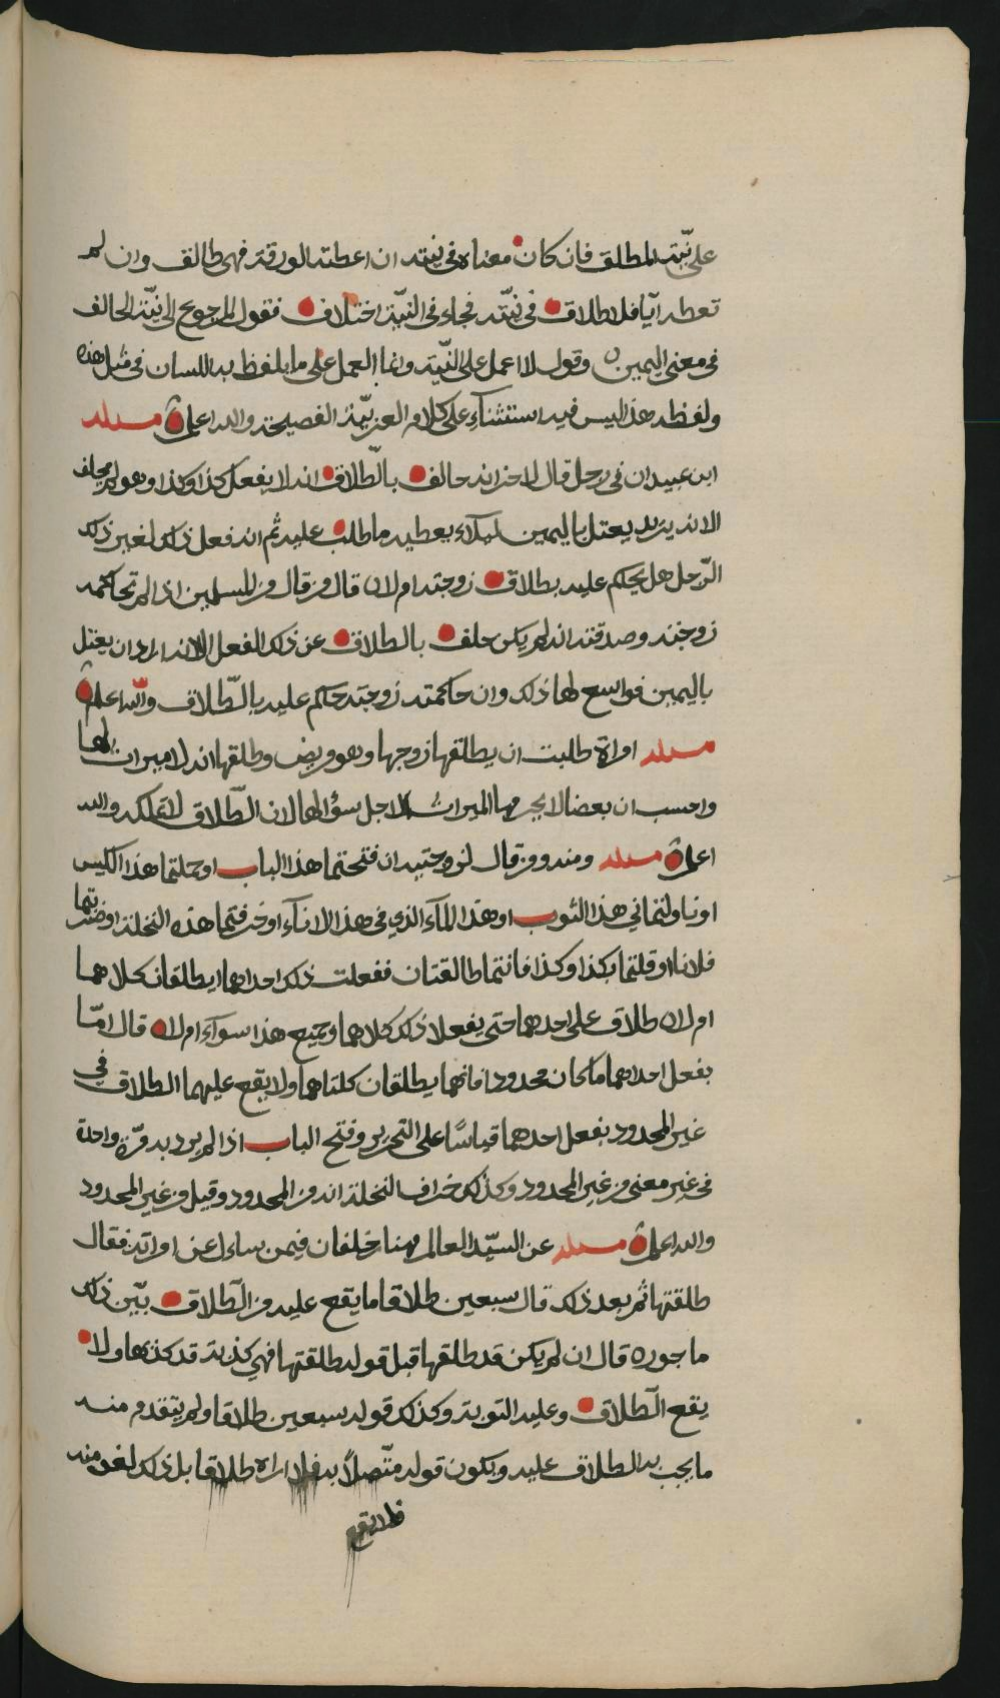 على نيّته المطلق فان كان معناه في نيته ان اعطته الورقة فهي طالق وان لم
تعطه اياها فلا طلاق في نيّته فجاء في النيّة اختلاف فقول المرجوع الى نيّة الحالف
في معنى اليمين وقول لا عمل على النيّة وانما العمل على ما يلفظ به اللسان في مثل هذه
ولفظه هذا ليس فيه استثناء على كلام العربيّة الفصيحة والله اعلم مسئلة
ابن عبيدان في رجل قال لاخر انه حالف بالطلاق انه لا يفعل كذا وكذا وهو لم يحلف
الا انه يريد يعتل باليمين ليلاء يعطيه ما طلب عليه ثم انه فعل ذلك لغير ذلك
الرّجل هل يحكم عليه بطلاق زوجته ام لا قال من قال من المسلمين اذا لم تحاكمه
زوجته وصدقته انه لم يكن حلف بالطلاق عن ذلك الفعل الا انه اراد ان يعتل
باليمين فواسع لها ذلك وان حاكمته زوجته حكم عليه بالطّلاق والله اعلم
مسئلة امراة طلبت ان يطلقها زوجها وهو مريض وطلقها انه لا ميراث لها
واحسب ان بعضا لا يحرمها الميراث لاجل سؤالها لان الطّلاق لا تملكه والله
اعلم مسئلة ومنه ومن قال لزوجتيه ان فتحتما هذا الباب او حملتما هذا الكيس
او ناولتماني هذا الثوب او هذا الماء الذي في هذا الاناء او خرفتما هذه النخلة او ضربتما
فلانا او قلتما بكذا وكذا فانتما طالقتان ففعلت ذلك احداهما ايطلقان كلاهما
ام لا طلاق على احدهما حتى يفعلا ذلك كلاهما وجميع هذا سواء ام لا قال امّا
بفعل احداهما ما كان محدودا فانهما يطلقان كلتاهما ولا يقع عليهما الطلاق في
غير المحدود بفعل احدهما قياسًا على التحرير وفتح الباب اذا لم يرد به مرّة واحدة
في غير معنى من غير المحدود وكذلك خراف النخلة انه من المحدود وقيل من غير المحدود
والله اعلم مسئلة عن السيّد العالم مهنا بن خلفان فيمن سائل عن امراته فقال
طلقتها ثم بعد ذلك قال سبعين طلاقا ما يقع عليه من الطّلاق بيّن ذلك
ماجورا قال ان لم يكن قد طلقها قبل قوله طلقتها فهي كذبة قد كذبها ولا
يقع الطّلاق وعليه التوبة وكذلك قوله سبعين طلاقا ولم يتقدم منه
ما يجب به الطلاق عليه ويكون قوله متّصلاً به فلا اراه طلاقا بل ذلك لغو منه
فلا يقع